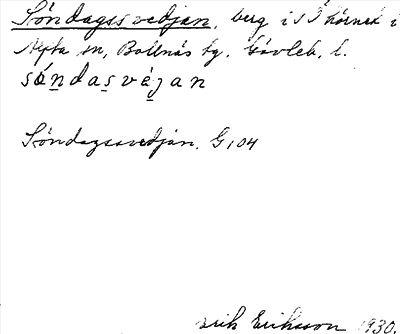 Söndagssvedjan, berg i SÖ hörnet i
Alfta sn, Bollnäs tg. Gävleb. l.
söndasvéjan
Söndagssvedjan. G, 04
Erik Eriksson 1930.